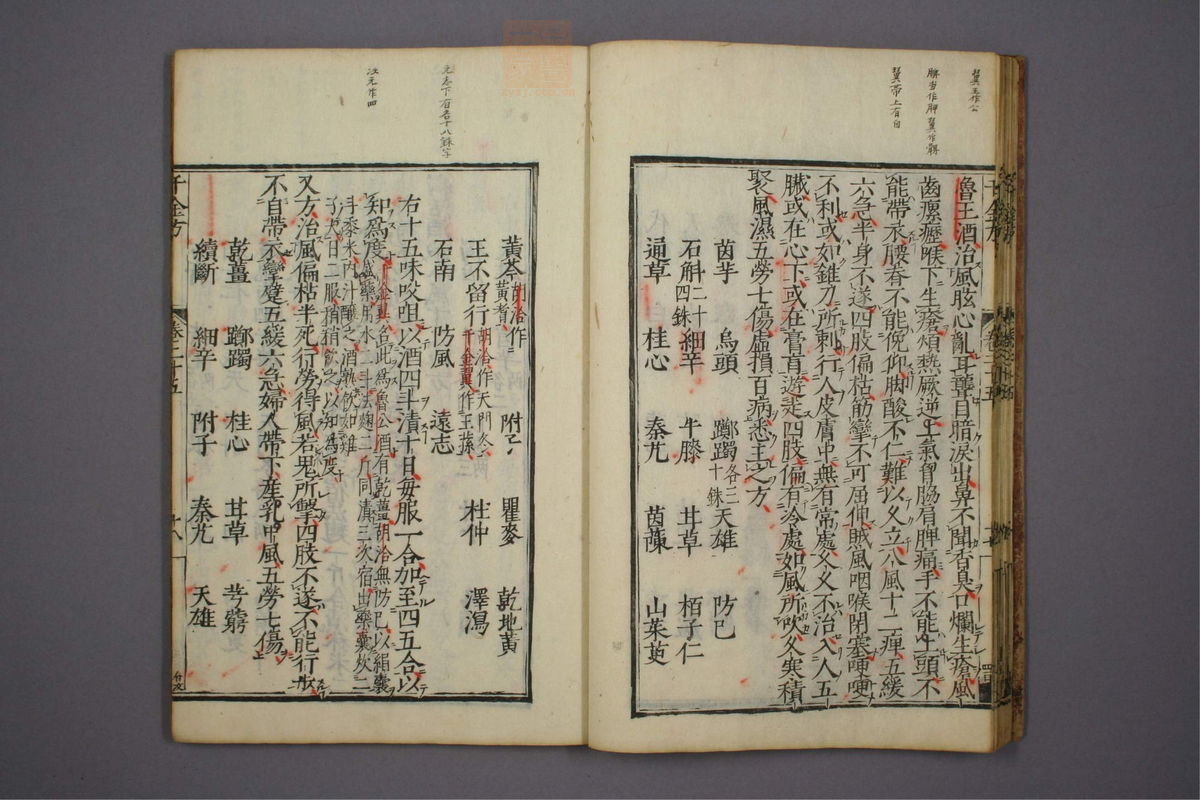 翼王作公
髀當作胛翼作髃
翼帶上有自
魯王酒治風眩心亂耳聾目暗淚出鼻不聞香臭口爛生瘡風
齒瘰癧喉下生瘡煩熱厥逆上氣胷脇肩髀痛手不能上頭不
能帶衣腰脊不能俛仰脚酸不仁難以久立八風十二痺五緩
六急半身不遂四肢偏枯筋攣不可屈伸賊風咽喉閉塞哽哽
不利或如錐刀所刺行人皮膚中無有常處久久不治入人五
臟或在心下或在膏肓遊走四肢偏有冷處如風所吹久寒積
聚風濕五勞七傷虛損百病悉主之方
茵芋 烏頭 躑躅各三十銖 天雄 防已
石斛二十四銖 細辛 牛膝 甘草 栢子仁
通草 桂心 秦艽 茵蔯 山茱萸
元志下有各十八銖字
注元作四
黃芩胡洽作黃耆 附子 瞿麥 乾地黃
王不留行胡洽作天門冬千金翼作王孫 杜仲 澤瀉
石南 防風 遠志
右十五味㕮咀以酒四斗漬十日每服一合加至四五合以
知爲度千金翼名此爲魯公酒有乾薑胡洽無防已以絹囊
手黍米內汁釀之酒熟飲如雞
子大日二服稍稍飲之以知爲度
又方治風偏枯半死行勞得風若鬼所擊四肢不遂不能行步
不自帶衣攣躄五緩六急婦人帶下産乳中風五勞七傷
乾薑 躑躅 桂心 甘草 芎藭
續斷 細辛 附子 秦艽 天雄
千金方 卷二十五 十八